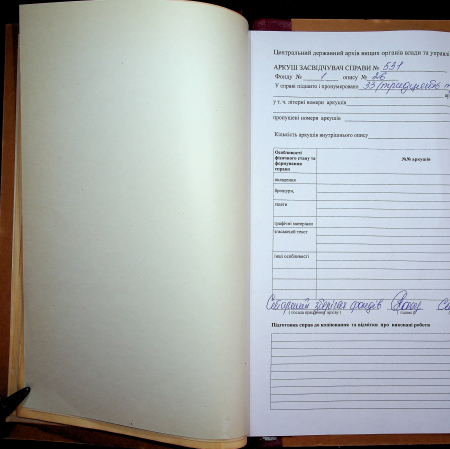 Центральний державний архів вищих органів влади та управлі
АРКУШ ЗАСВІДЧУВАЧ СПРАВИ № 531
Фонду № 1 опису № 2б
У справі підшито і пронумеровано 33 /тридцять
у т. ч. літерні номери аркушів
пропущені номери аркушів
Кількість аркушів внутрішнього опису
Особливості фізичного стану та формування справи
№№ аркушів
вкладення
брошури,
газети
графічні матеріали
згасаючий текст
інші особливості
зберігач фондів
( посада працівника архіву )
Підготовка справ до копіювання та відмітки про виконані робота